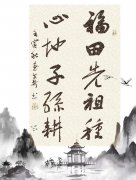 福田先祖種
心地子孫耕